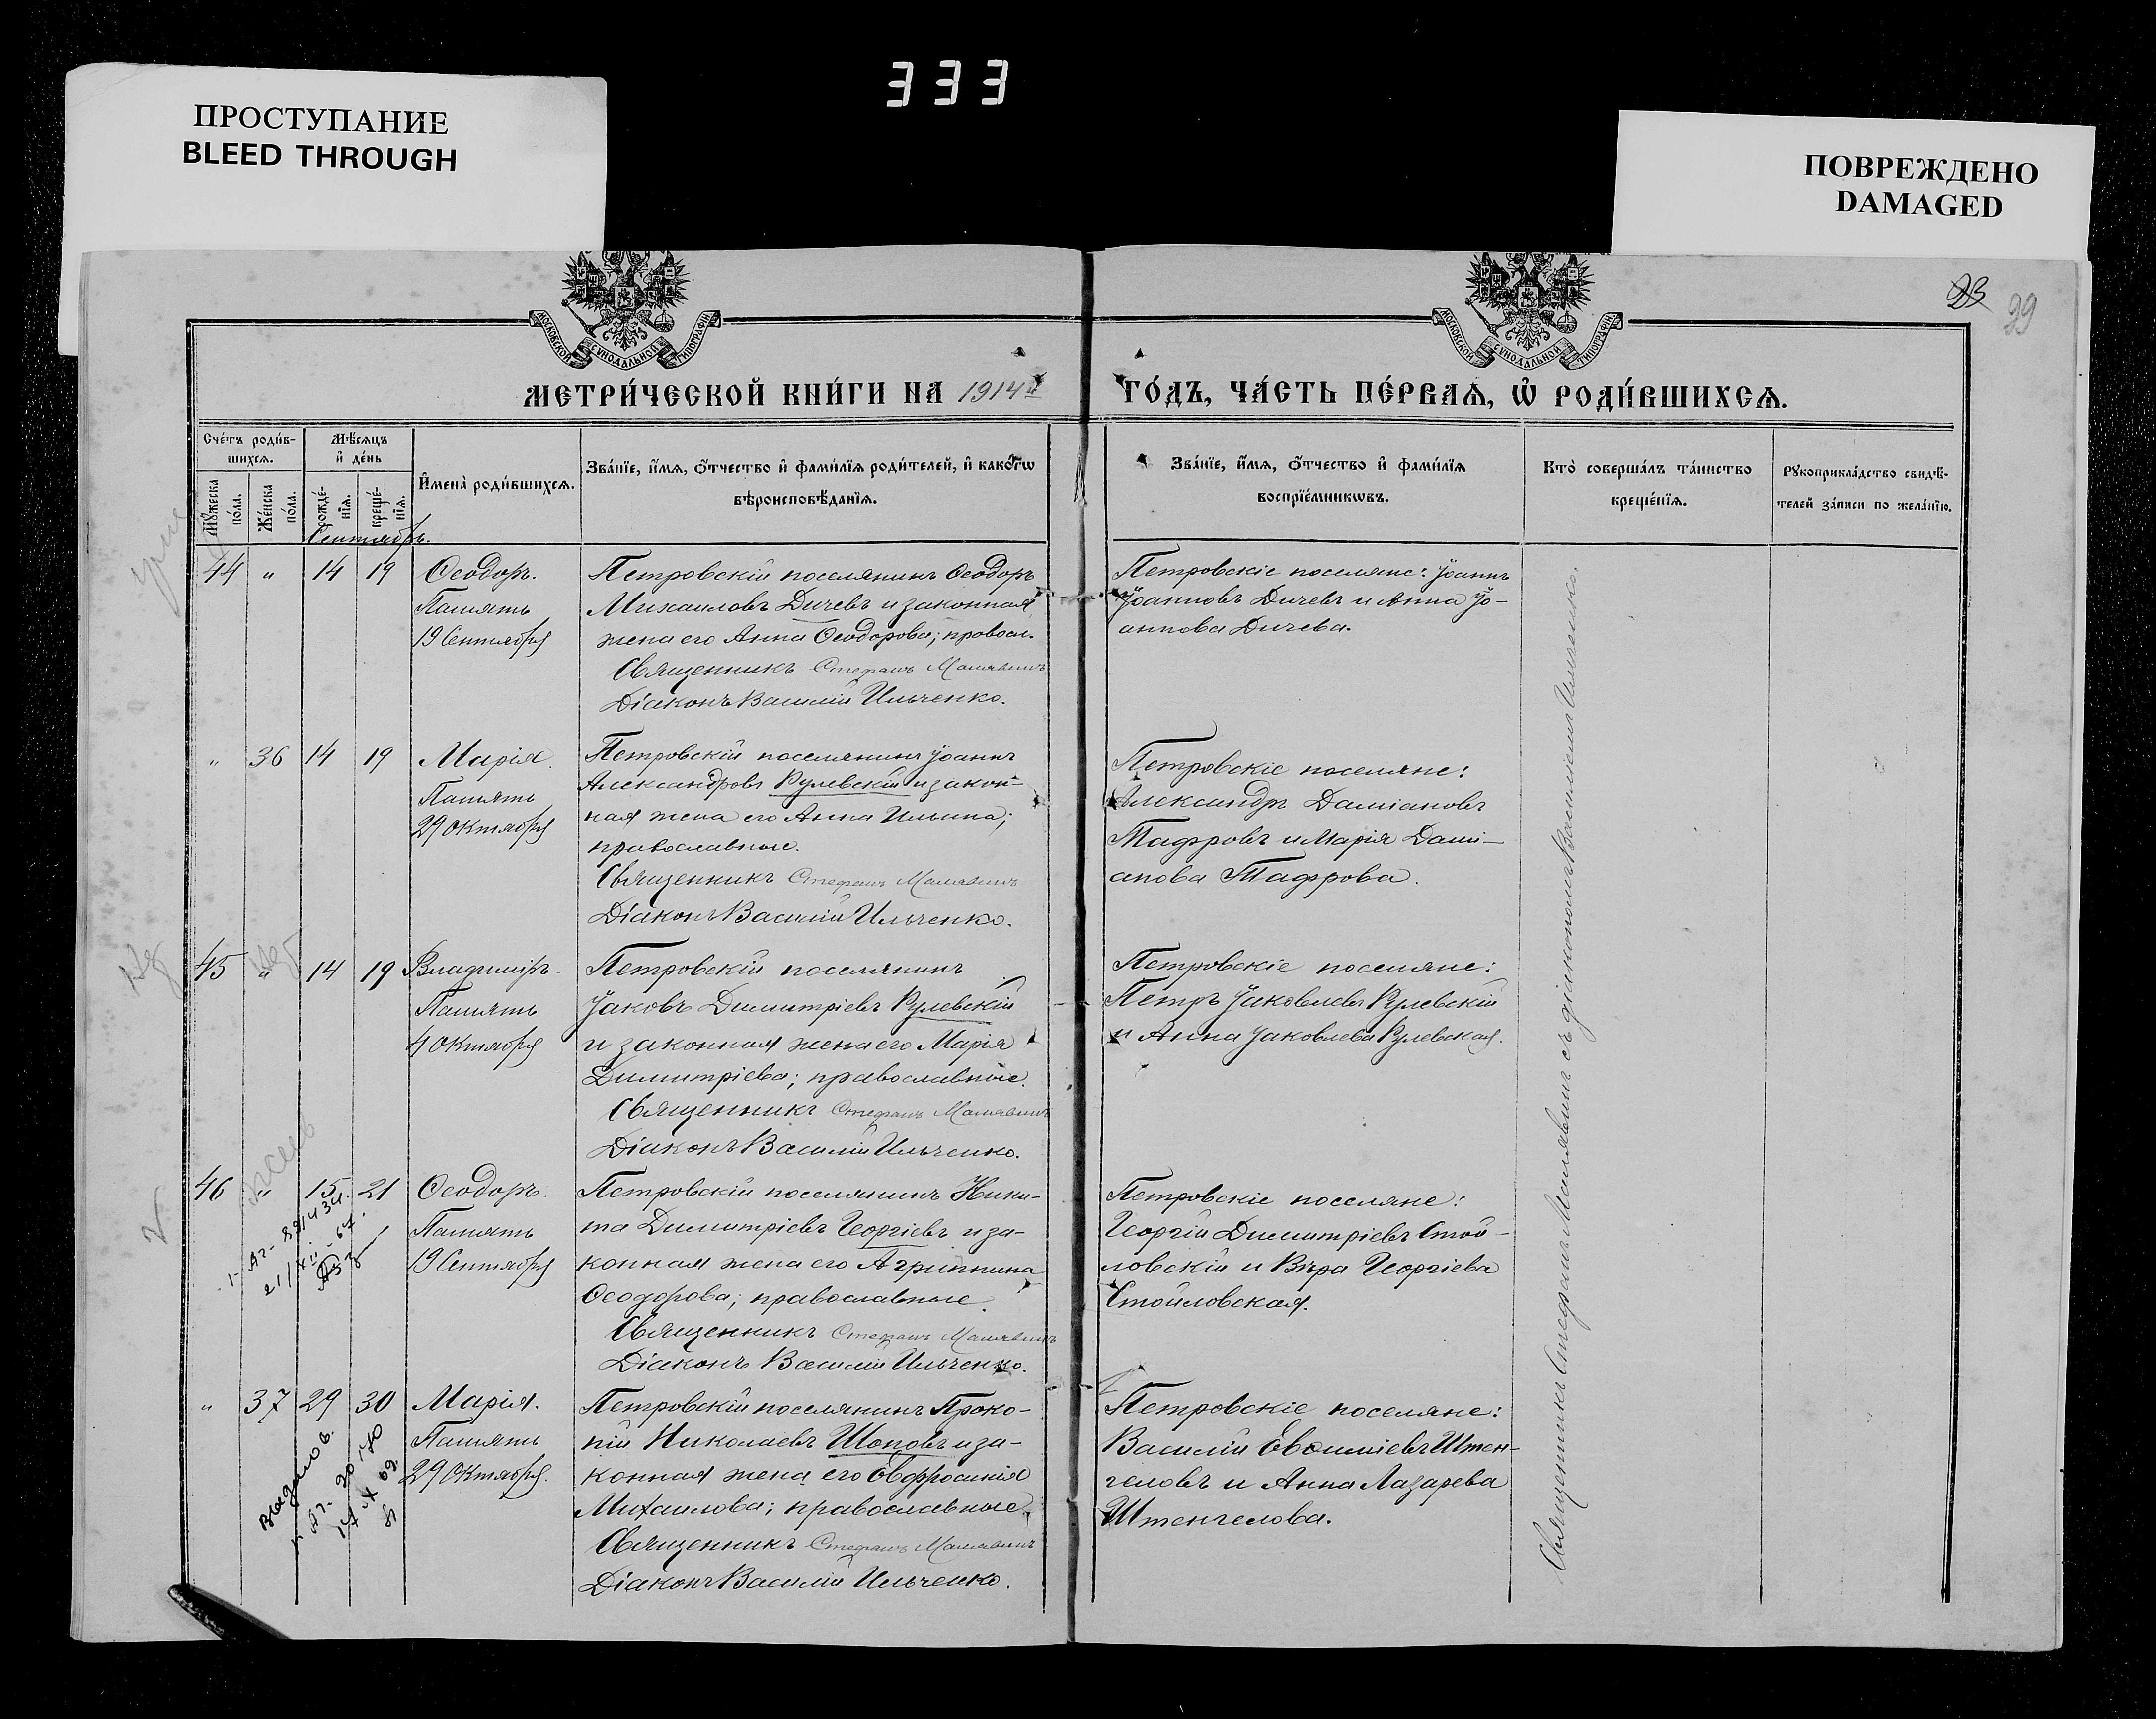 333
ПРОСТУПАНИЕ
BLEED THROUGH
ПОВРЕЖДЕНО
DAMAGED
МОСКОВСКОЙ СѴНОДАЛЬНОЙ ТИПОГРАФІИ
МОСКОВСКОЙ СѴНОДАЛЬНОЙ ТИПОГРАФІИ
23
МЕТРИ́ЧЕСКОЙ КНИ́ГИ НА 1914й
ГО́ДЪ, ЧА́СТЬ ПЕ́РВАѦ, Ѡ҆ РОДИ́ВШИХСѦ.
Сче́тъ роди́в-
шихсѧ.
Мꙋ́жеска по́ла.
Же́нска по́ла.
Мѣ́сѧцъ
и҆ де́нь
рожде́-
нїѧ.
креще́-
нїѧ.
И҆мена̀ роди́вшихсѧ.
Зва́нїе, и҆́мѧ, ѻ҆́тчество и҆ фами́лїѧ роди́телей, и҆ како́гѡ
вѣроисповѣ́данїѧ.
Зва́нїе, и҆́мѧ, ѻ҆́тчество и҆ фами́лїѧ
воспрїе́мникѡвъ.
Кто̀ соверша́лъ та́инство
креще́нїѧ.
Рꙋкоприкла́дство свидѣ́-
телей за́писи по жела́нїю.
Сентябрь.
44 " 14 19
Ѳеодоръ.
Память
19 Сентября
Петровскій поселянинъ Ѳеодоръ
Михаиловъ Дичевъ и законная
жена его Анна Ѳеодорова; правосл.
Священникъ Стефанъ Малявинъ
Діаконъ Василій Ильченко.
Петровскіе поселяне: Іоаннъ
Іоанновъ Дичевъ и Анна Іо-
аннова Дичева.
" 36 14 19
Марія.
Память
29 Октября
Петровскій поселянинъ Іоаннъ
Александровъ Рулевскій и закон-
ная жена его Анна Ильина;
православные.
Священникъ Стефанъ Малявинъ
Діаконъ Василій Ильченко.
Петровскіе поселяне:
Александръ Даміановъ
Тафровъ и Марія Дамі-
анова Тафрова.
45 " 14 19
Владиміръ.
Память
4 Октября
Петровскій поселянинъ
Іаковъ Димитріевъ Рулевскій
и законная жена его Марія
Димитріева; православные.
Священникъ Стефанъ Малявинъ
Діаконъ Василій Ильченко.
Петровскіе поселяне:
Петръ Іаковлевъ Рулевскій
и Анна Іаковлева Рулевская.
46 " 15 21
Ѳеодоръ.
Память
19 Сентября
Петровскій поселянинъ Ники-
та Димитріевъ Георгіевъ и за-
конная жена его Агриппина
Ѳеодорова; православные.
Священникъ Стефанъ Малявинъ
Діаконъ Василій Ильченко.
Петровскіе поселяне:
Георгій Димитріевъ Стой-
ловскій и Вѣра Георгіева
Стойловская.
" 37 29 30
Марія.
Память
29 Октября.
Петровскій поселянинъ Проко-
пій Николаевъ Шоповъ и за-
конная жена его Евфросинія
Михаилова; православные.
Священникъ Стефанъ Малявинъ
Діаконъ Василій Ильченко.
Петровскіе поселяне:
Василій Евѳиміевъ Штен-
геловъ и Анна Лазарева
Штенгелова.
Священникъ Стефанъ Малявинъ съ діакономъ Василіемъ Ильченко.